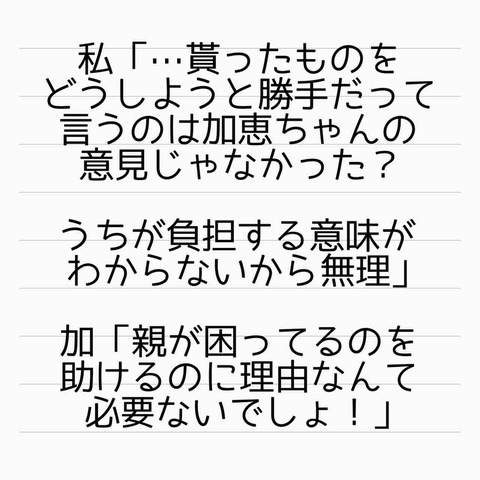 私「…貰ったものを
どうしようと勝手だって
言うのは加恵ちゃんの
意見じゃなかった？
うちが負担する意味が
わからないから無理」
加「親が困ってるのを
助けるのに理由なんて
必要ないでしょ！」